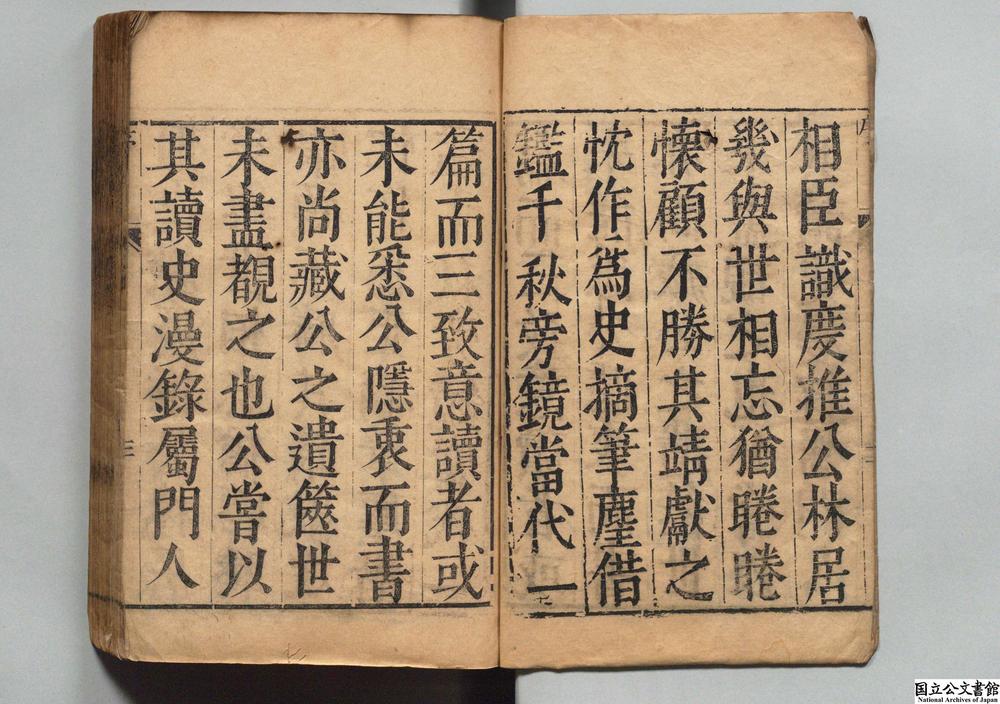 相臣識度推公林居
幾與世相忘猶睠睠
懐顧不勝其靖獻之
忱作爲史摘筆麈借
鑑千秋旁鏡當代一
篇而三致意讀者或
未能悉公隱衷而書
亦尚藏公之遺篋世
未盡覩之也公嘗以
其讀史漫錄屬門人
序
三
国立公文書館
National Archives of Japan